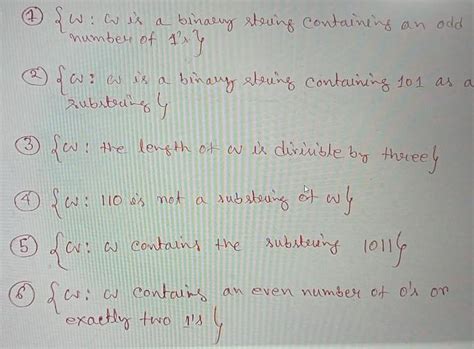 ① {w: w is a binary string containing an odd
number of 1's}
② {w: w is a binary string containing 101 as a
substring}
③ {w: the length of w is divisible by three}
④ {w: 110 is not a substring of w}
⑤ {w: w contains the substring 1011}
⑥ {w: w contains an even number of 0's or
exactly two 1's}